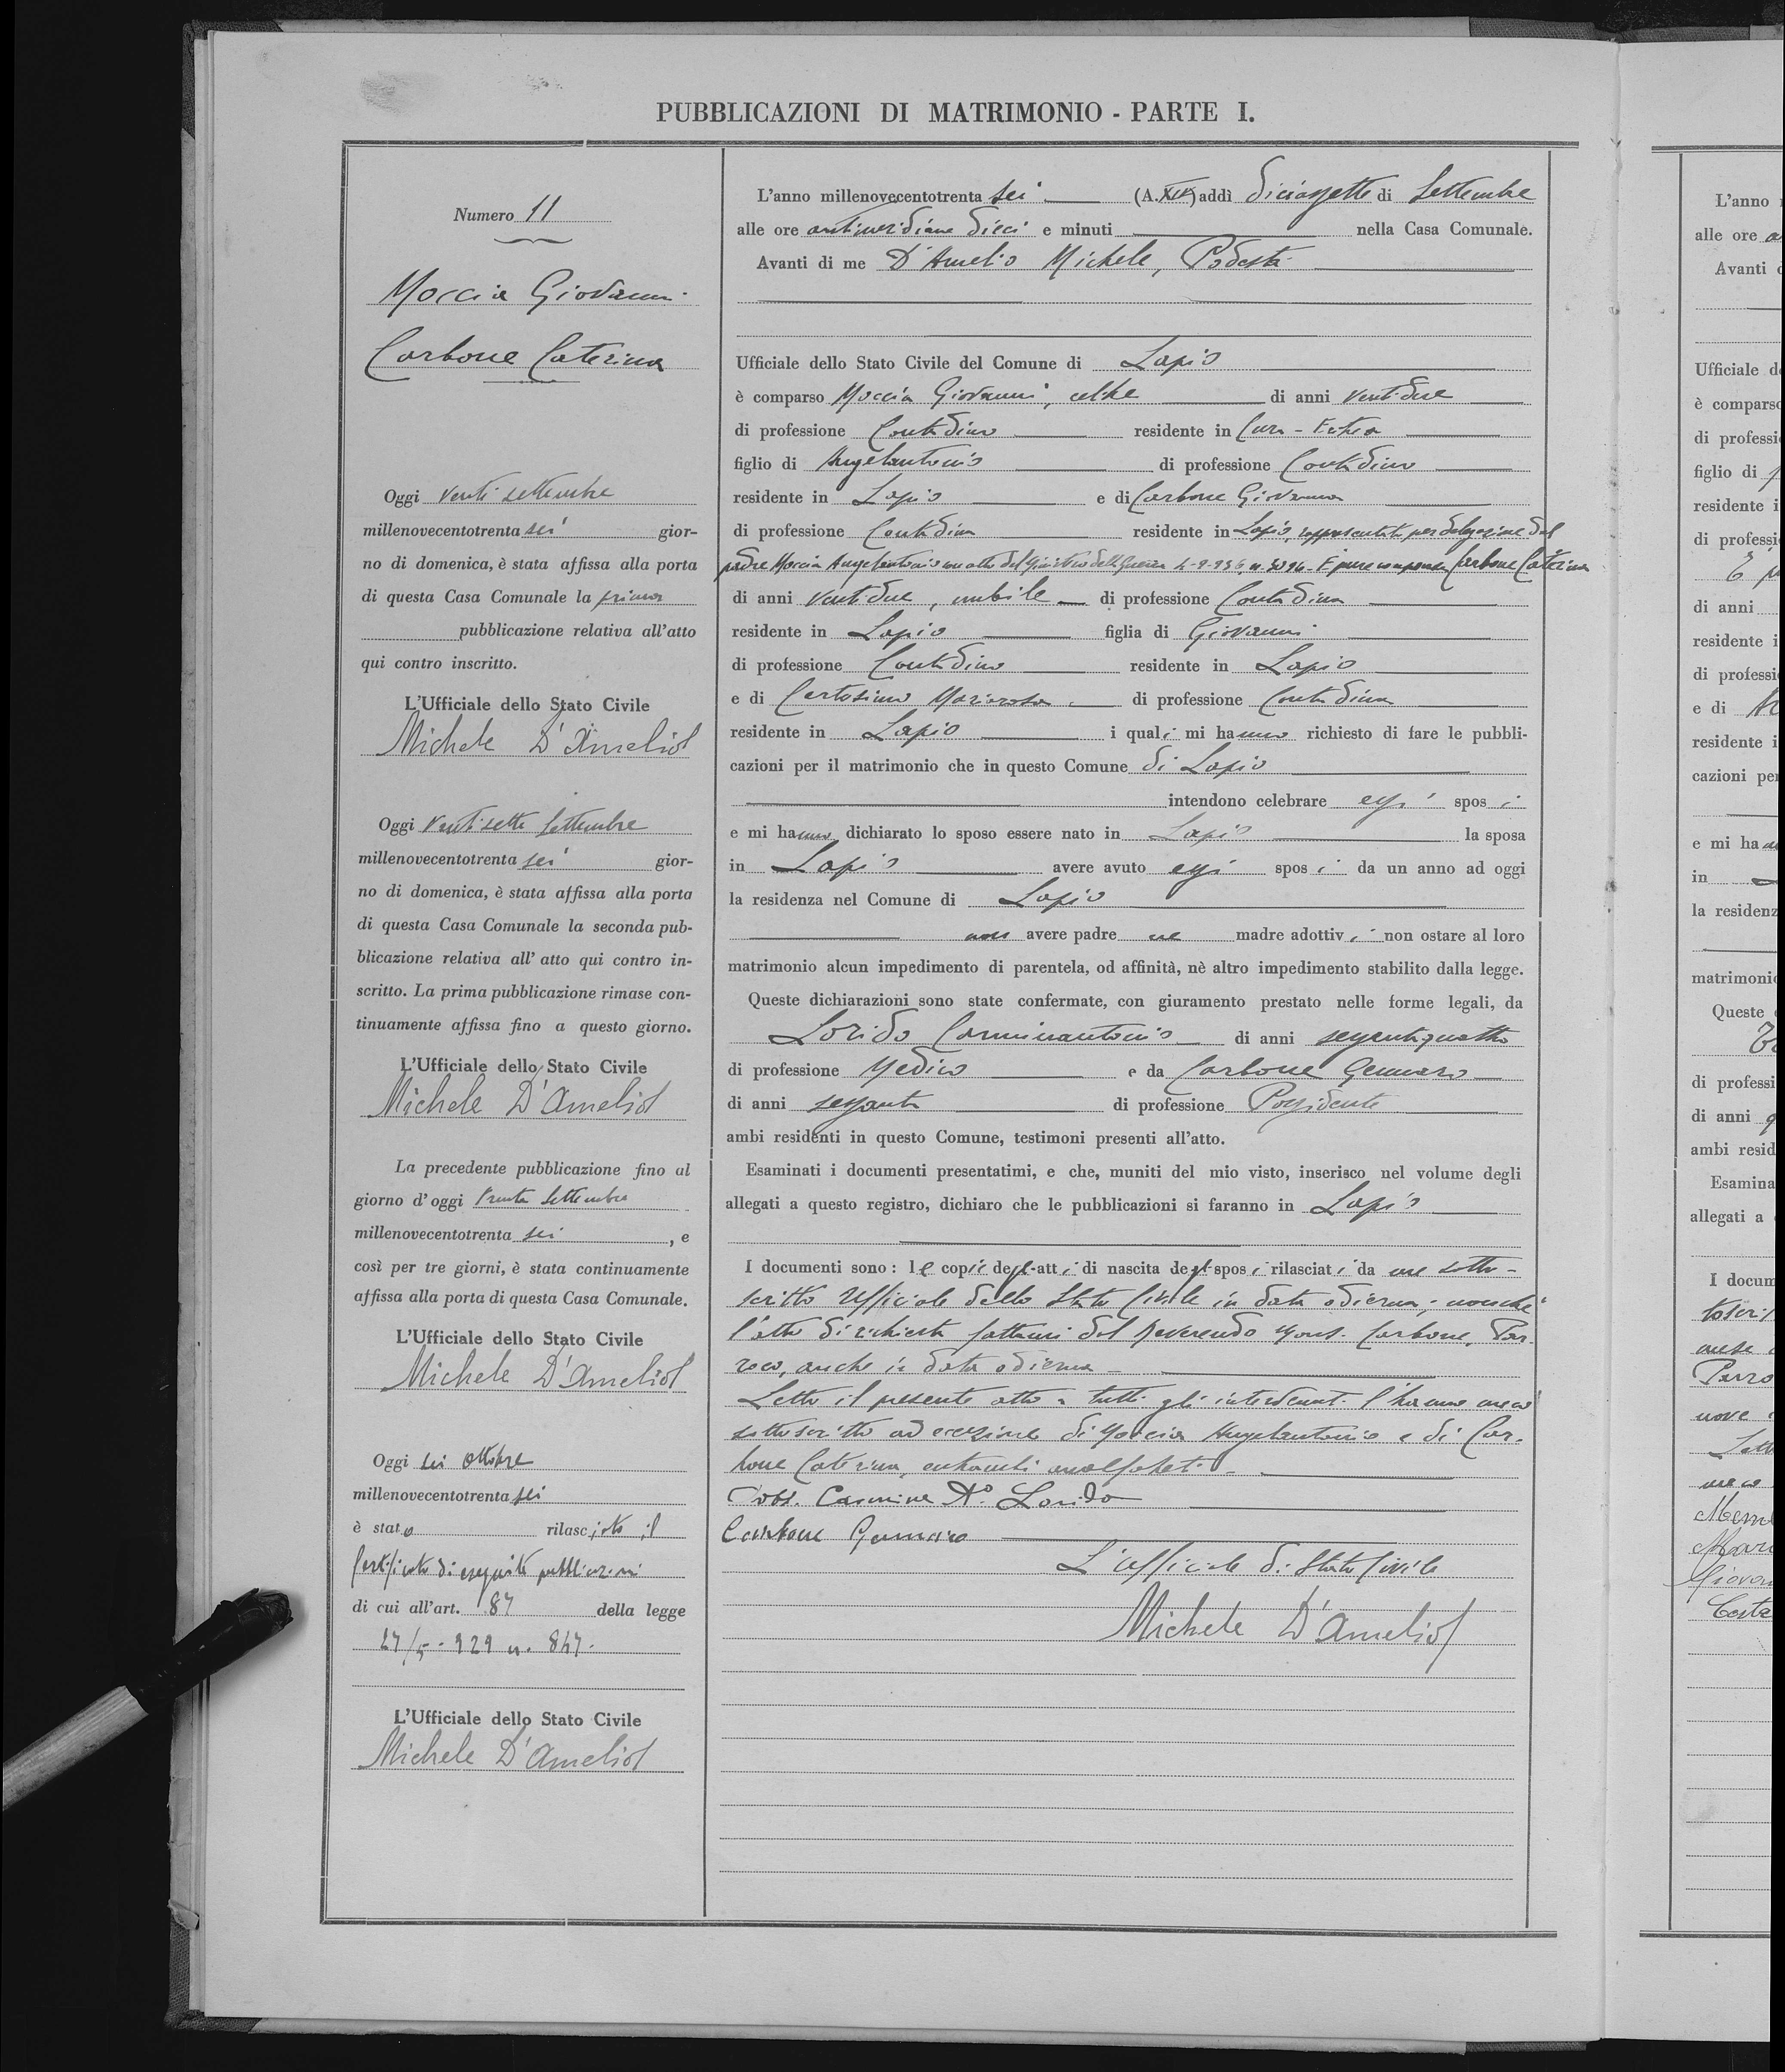 PUBBLICAZIONI DI MATRIMONIO - PARTE I.
Numero 11
Moccia Giovanni
Carbone Caterina
Oggi venti settembre
millenovecentotrenta sei gior-
no di domenica, è stata affissa alla porta
di questa Casa Comunale la prima
pubblicazione relativa all'atto
qui contro inscritto.
L'Ufficiale dello Stato Civile
Michele D'Amelio
Oggi ventisette settembre
millenovecentotrenta sei gior-
no di domenica, è stata affissa alla porta
di questa Casa Comunale la seconda pub-
blicazione relativa all' atto qui contro in-
scritto. La prima pubblicazione rimase con-
tinuamente affissa fino a questo giorno.
L'Ufficiale dello Stato Civile
Michele D'Amelio
La precedente pubblicazione fino al
giorno d'oggi trenta settembre
millenovecentotrenta sei , e
così per tre giorni, è stata continuamente
affissa alla porta di questa Casa Comunale.
L'Ufficiale dello Stato Civile
Michele D'Amelio
Oggi sei ottobre
millenovecentotrenta sei
è stato rilasciato il
certificato di eseguite pubblicazioni
di cui all'art. 87 della legge
27/5-929 n. 847.
L'Ufficiale dello Stato Civile
Michele D'Amelio
L'anno millenovecentotrenta sei (A. XIV) addì diciassette di Settembre
alle ore antimeridiane dieci e minuti nella Casa Comunale.
Avanti di me D'Amelio Michele, Podestà
Ufficiale dello Stato Civile del Comune di Lapio
è comparso Moccia Giovanni, celibe di anni ventidue
di professione Contadino residente in
figlio di Angelantonio di professione Contadino
residente in Lapio e di Carbone Giovanna
di professione Contadina residente in Lapio, rappresentato per delegazione dal
padre Moccia Angelantonio con atto del Ministero della Guerra 4-9-936, n. E pure comparsa Carbone Caterina
di anni ventidue, nubile di professione Contadina
residente in Lapio figlia di Giovanni
di professione Contadino residente in Lapio
e di Certosimo Mariarosa di professione Contadina
residente in Lapio i quali mi hanno richiesto di fare le pubbli-
cazioni per il matrimonio che in questo Comune di Lapio
intendono celebrare essi sposi
e mi hanno dichiarato lo sposo essere nato in Lapio la sposa
in Lapio avere avuto essi sposi da un anno ad oggi
la residenza nel Comune di Lapio
non avere padre ne madre adottivi non ostare al loro
matrimonio alcun impedimento di parentela, od affinità, nè altro impedimento stabilito dalla legge.
Queste dichiarazioni sono state confermate, con giuramento prestato nelle forme legali, da
Lorido Carminantonio di anni sessantaquattro
di professione Medico e da Carbone Gennaro
di anni sessanta di professione Possidente
ambi residenti in questo Comune, testimoni presenti all'atto.
Esaminati i documenti presentatimi, e che, muniti del mio visto, inserisco nel volume degli
allegati a questo registro, dichiaro che le pubblicazioni si faranno in Lapio
I documenti sono: le copie degli atti di nascita degli sposi rilasciati da me sotto-
scritto Ufficiale dello Stato Civile in data odierna; nonchè
l'atto di richiesta fattami dal Reverendo Mons. Carbone, Par-
roco, anche in data odierna
Letto il presente atto a tutti gli intervenuti l'hanno meco
sottoscritto ad eccezione di Moccia Angelantonio e di Car-
bone Caterina, entrambi analfabeti.
Dott. Carmine A° Lorido
Carbone Gennaro
L'Ufficiale di Stato Civile
Michele D'Amelio
L'anno
alle ore
Avanti
Ufficiale
è comparso
di professi
figlio di
residente i
di professi
di anni
residente i
di professi
e di
residente i
cazioni per
e mi ha
in
la residenz
matrimonio
Queste
di professi
di anni
ambi resid
Esamina
allegati a
I docum